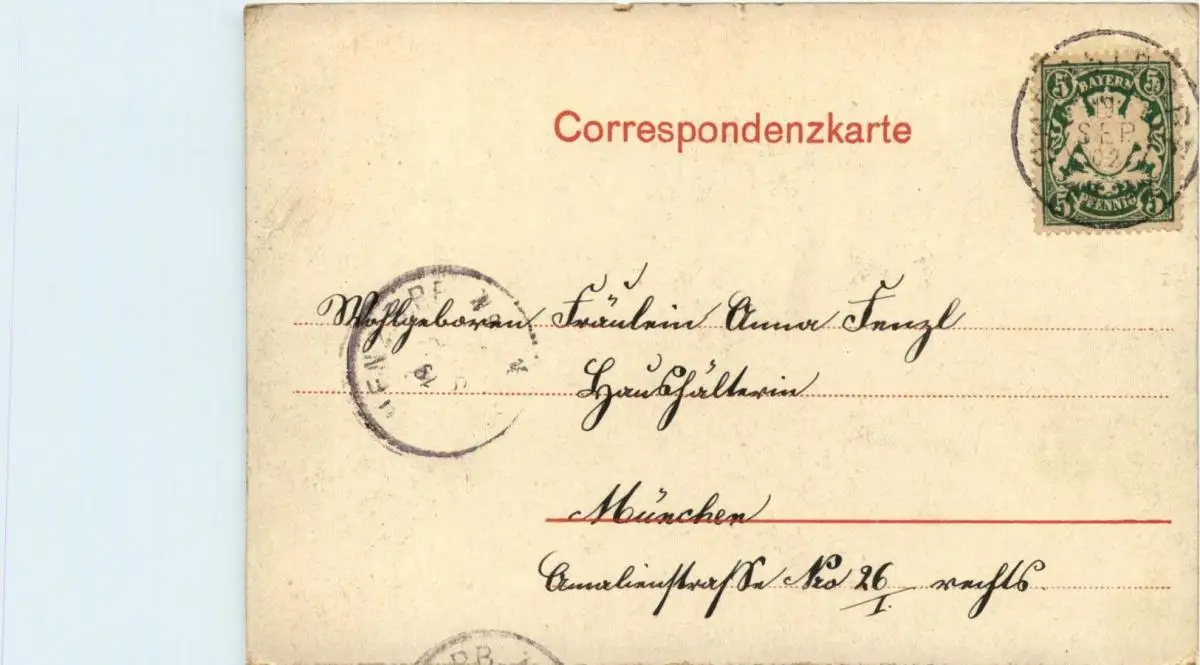 Correspondenzkarte
5 5
BAYERN
SEP
02
PFENNIG
5 5
Wohlgeboren Fräulein Anna Fenzl
Haushälterin
München
Amalienstraße Nro 26/I. rechts.